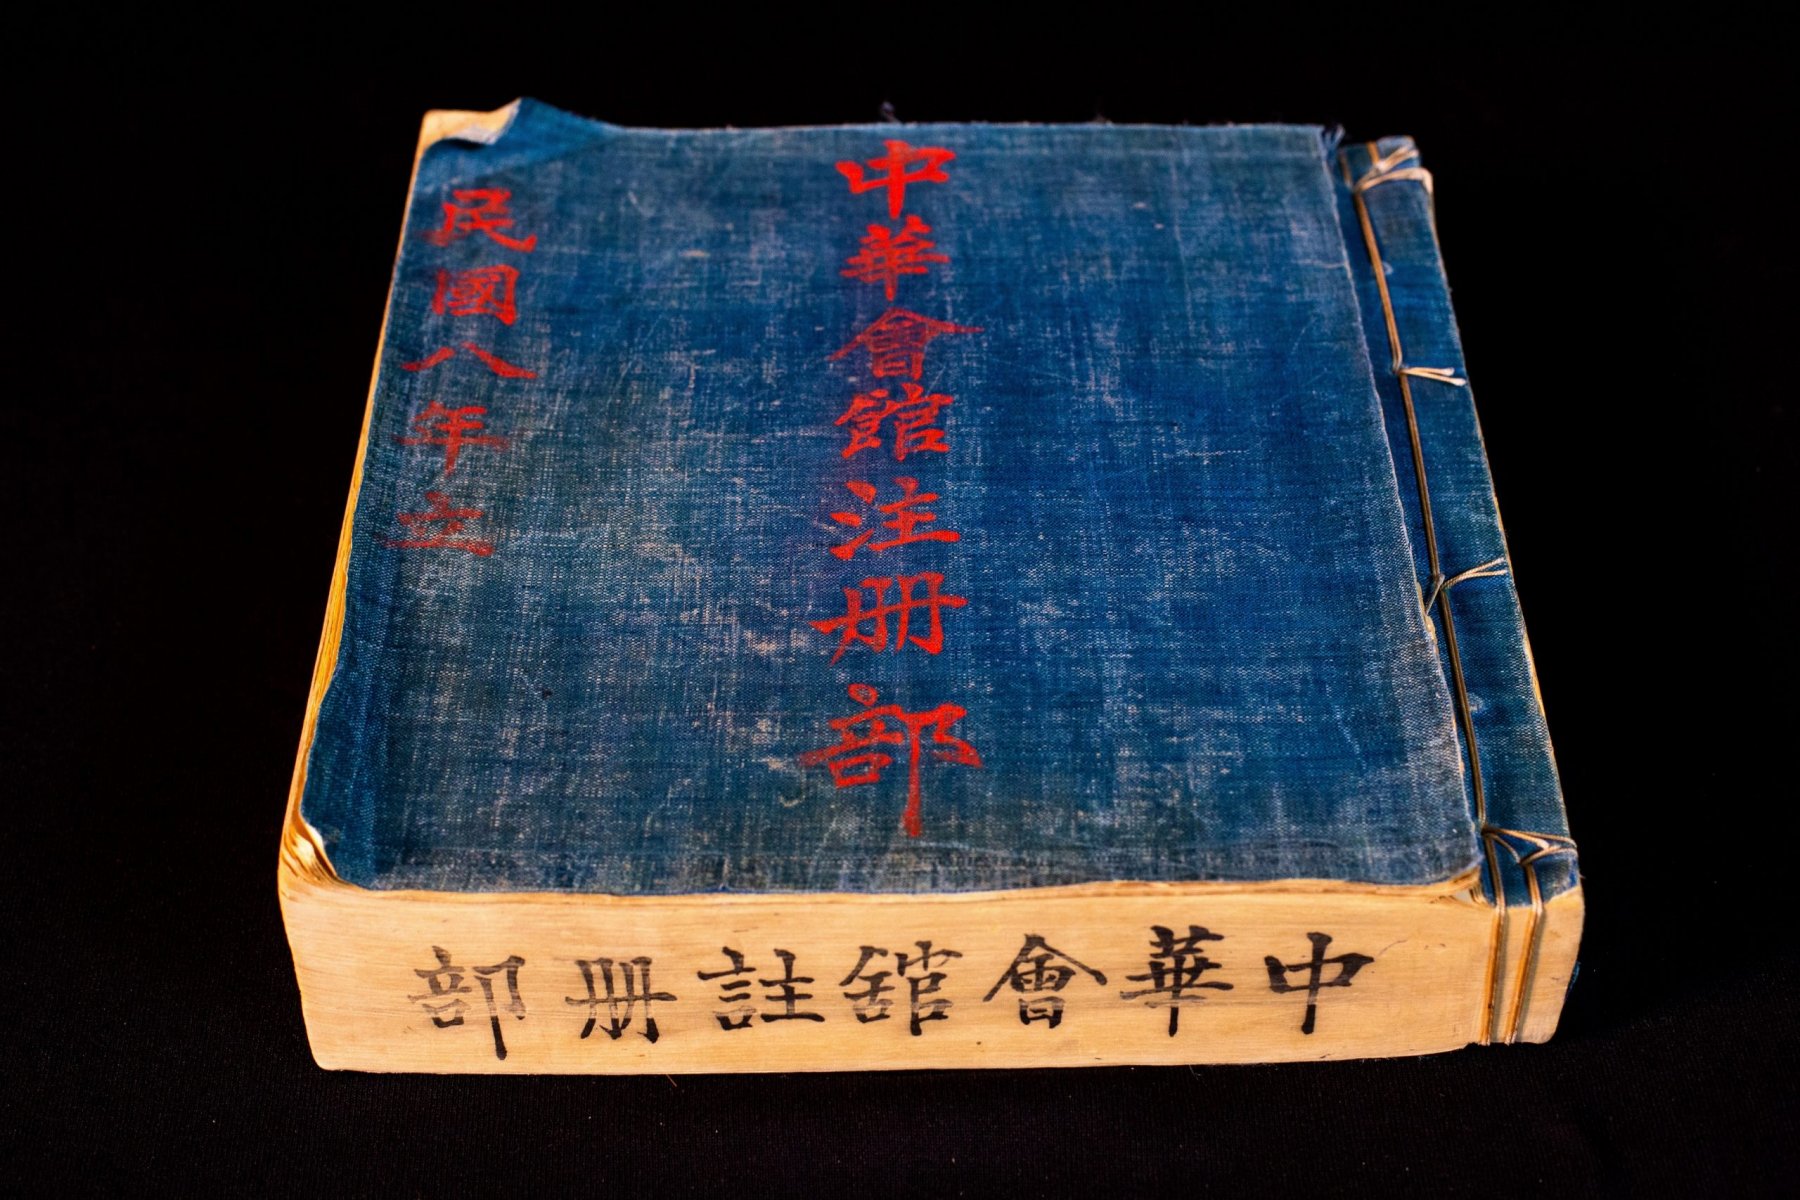 中華會館注册部
民國八年立
中華會舘註册部